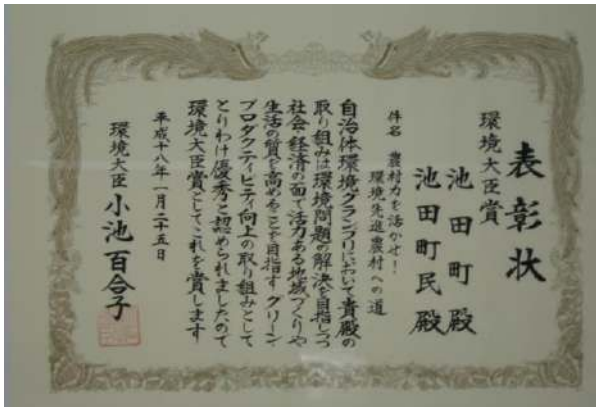 表彰状
環境大臣賞
池田町殿
池田町民殿
件名 農村力を活かせ!
環境先進農村への道
自治体環境グランプリにおいて貴殿の
取り組みは環境問題の解決を目指しつつ
社会・経済の面で活力ある地域づくりや
生活の質を高めることを目指すグリーン
プロダクティビティ向上の取り組みとして
とりわけ優秀と認められましたので
環境大臣賞としてこれを賞します
平成十八年一月二十五日
環境大臣 小池百合子